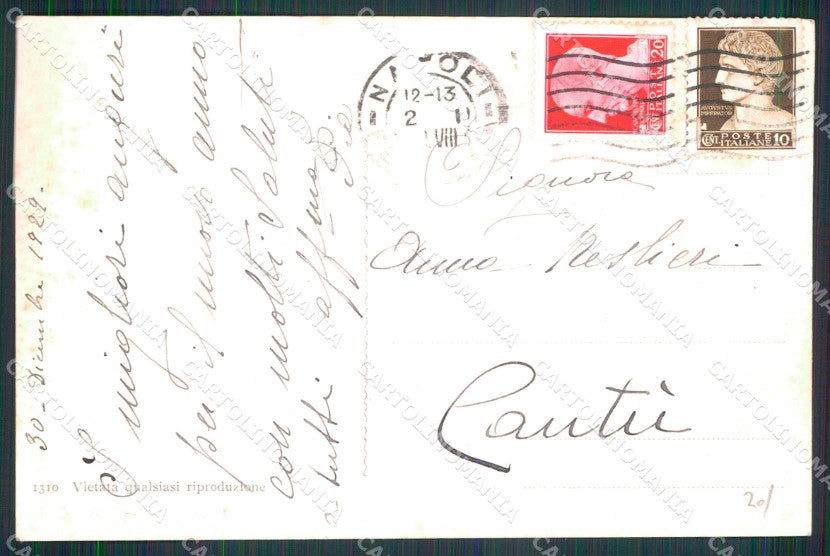 30 - Dicembre 1929 -
I migliori auguri
per il nuovo anno
con molti saluti
a tutti aff.ma
NAPOLI
12-13
2
VIII
POSTE ITALIANE 20
AVGVSTVS
IMPERATOR
POSTE
CENT. ITALIANE 10
Signora
Anna
Cantù
1310 Vietata qualsiasi riproduzione
20/
CARTOLINOMANIA